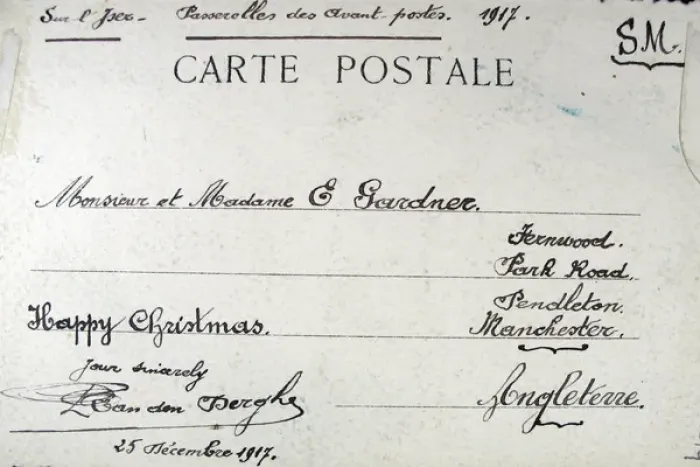 Sur l'Iser - Passerelles des avant-postes. 1917.
S.M.
CARTE POSTALE
Monsieur et Madame E Gardner.
Fernwood.
Park Road.
Pendleton.
Happy Christmas. Manchester.
Your sincarely
Van den Berghe Angleterre.
25 Décembre 1917.